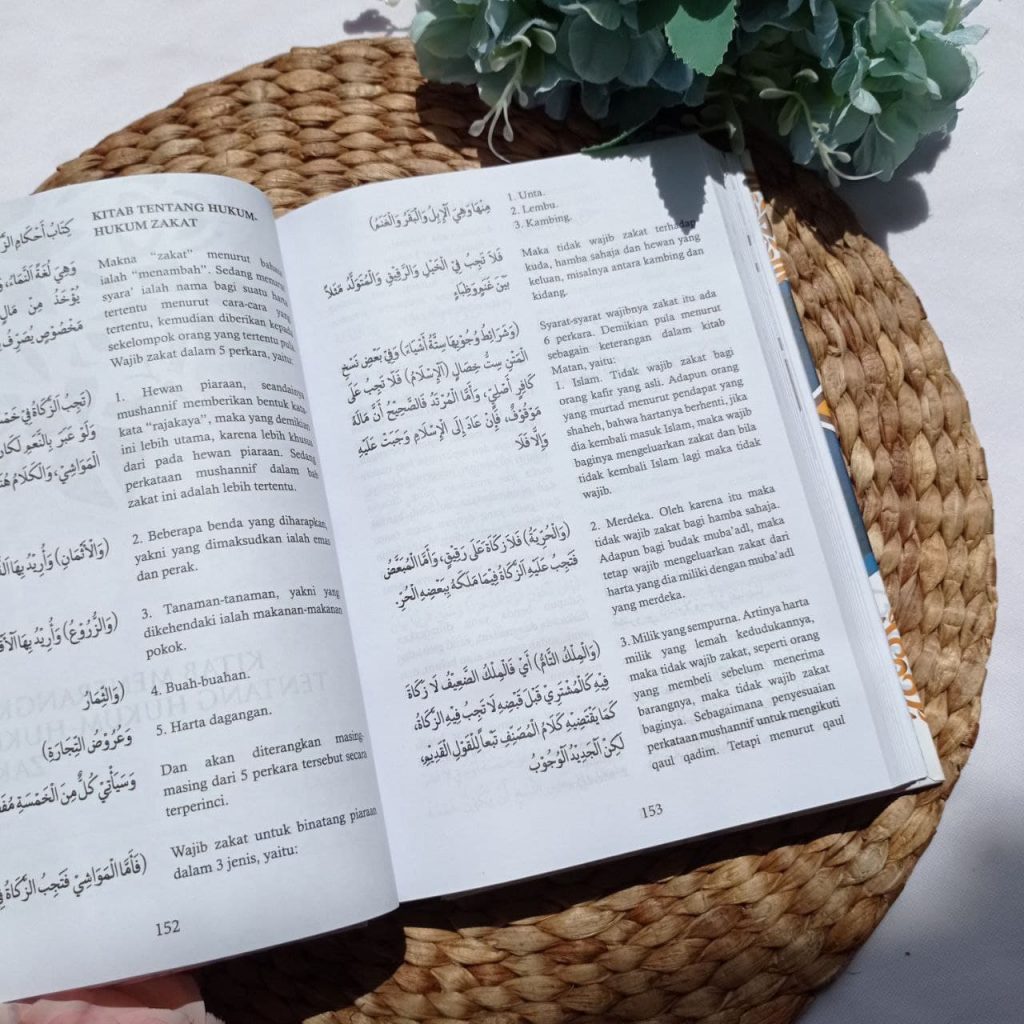 كِتَابُ أَحْكَامِ
وَهِيَ لُغَةً النَّمَاءُ،
يُؤْخَذُ مِنْ مَالٍ
مَخْصُوصٍ يُصْرَفُ
(تَجِبُ الزَّكَاةُ فِي
وَلَوْ عَبَّرَ بِالنَّعَمِ لَكَانَ
الْمَوَاشِيْ، وَالْكَلَامُ
(وَالْأَثْمَانِ) وَأُرِيْدُ بِهَا
(وَالزُّرُوْعُ) وَأُرِيْدُ بِهَا
(وَالثِّمَارُ
وَعُرُوْضُ التِّجَارَةِ)
وَسَيَأْتِيْ كُلٌّ مِنَ الْخَمْسَةِ
(فَأَمَّا الْمَوَاشِيْ فَتَجِبُ الزَّكَاةُ
KITAB TENTANG HUKUM-
HUKUM ZAKAT
Makna “zakat” menurut bahasa
ialah “menambah”. Sedang menurut
syara’ ialah nama bagi suatu harta
tertentu menurut cara-cara yang
tertentu, kemudian diberikan kepada
sekelompok orang yang tertentu pula.
Wajib zakat dalam 5 perkara, yaitu:
1. Hewan piaraan, seandainya
mushannif memberikan bentuk kata-
kata “rajakaya”, maka yang demikian
ini lebih utama, karena lebih khusus
dari pada hewan piaraan. Sedang
perkataan mushannif dalam bab
zakat ini adalah lebih tertentu.
2. Beberapa benda yang diharapkan,
yakni yang dimaksudkan ialah emas
dan perak.
3. Tanaman-tanaman, yakni yang
dikehendaki ialah makanan-makanan
pokok.
4. Buah-buahan.
5. Harta dagangan.
Dan akan diterangkan masing-
masing dari 5 perkara tersebut secara
terperinci.
Wajib zakat untuk binatang piaraan
dalam 3 jenis, yaitu:
152
مِنْهَا وَهِيَ الْإِبِلُ وَالْبَقَرُ وَالْغَنَمُ)
فَلَا تَجِبُ فِي الْخَيْلِ وَالرَّقِيْقِ وَالْمُتَوَلَّدُ مَثَلًا
بَيْنَ غَنَمٍ وَظِبَاءٍ
(وَشَرَائِطُ وُجُوْبِهَا سِتَّةُ أَشْيَاءَ) وَفِيْ بَعْضِ نُسَخِ
الْمَتْنِ سِتُّ خِصَالٍ (الْإِسْلَامُ) فَلَا تَجِبُ عَلَى
كَافِرٍ أَصْلِيٍّ، وَأَمَّا الْمُرْتَدُّ فَالصَّحِيْحُ أَنَّ مَالَهُ
مَوْقُوْفٌ، فَإِنْ عَادَ إِلَى الْإِسْلَامِ وَجَبَتْ عَلَيْهِ
وَإِلَّا فَلَا
(وَالْحُرِّيَةُ) فَلَا زَكَاةَ عَلَى رَقِيْقٍ، وَأَمَّا الْمُبَعَّضُ
فَتَجِبُ عَلَيْهِ الزَّكَاةُ فِيْمَا مَلَكَهُ بِبَعْضِهِ الْحُرِّ.
(وَالْمِلْكُ التَّامُّ) أَيْ فَالْمِلْكُ الضَّعِيْفُ لَا زَكَاةَ
فِيْهِ كَالْمُشْتَرِيْ قَبْلَ قَبْضِهِ لَا تَجِبُ فِيْهِ الزَّكَاةُ،
كَمَا يَقْتَضِيْهِ كَلَامُ الْمُصَنِّفِ تَبَعًا لِلْقَوْلِ الْقَدِيْمِ،
لَكِنْ الْجَدِيْدُ الْوُجُوْبُ
1. Unta.
2. Lembu.
3. Kambing.
Maka tidak wajib zakat terhadap
kuda, hamba sahaja dan hewan yang
keluan, misalnya antara kambing dan
kidang.
Syarat-syarat wajibnya zakat itu ada
6 perkara. Demikian pula menurut
sebagain keterangan dalam kitab
Matan, yaitu:
1. Islam. Tidak wajib zakat bagi
orang kafir yang asli. Adapun orang
yang murtad menurut pendapat yang
shaheh, bahwa hartanya berhenti, jika
dia kembali masuk Islam, maka wajib
baginya mengeluarkan zakat dan bila
tidak kembali Islam lagi maka tidak
wajib.
2. Merdeka. Oleh karena itu maka
tidak wajib zakat bagi hamba sahaja.
Adapun bagi budak muba’adl, maka
tetap wajib mengeluarkan zakat dari
harta yang dia miliki dengan muba’adl
yang merdeka.
3. Milik yang sempurna. Artinya harta
milik yang lemah kedudukannya,
maka tidak wajib zakat, seperti orang
yang membeli sebelum menerima
barangnya, maka tidak wajib zakat
baginya. Sebagaimana penyesuaian
perkataan mushannif untuk mengikuti
qaul qadim. Tetapi menurut qaul
153